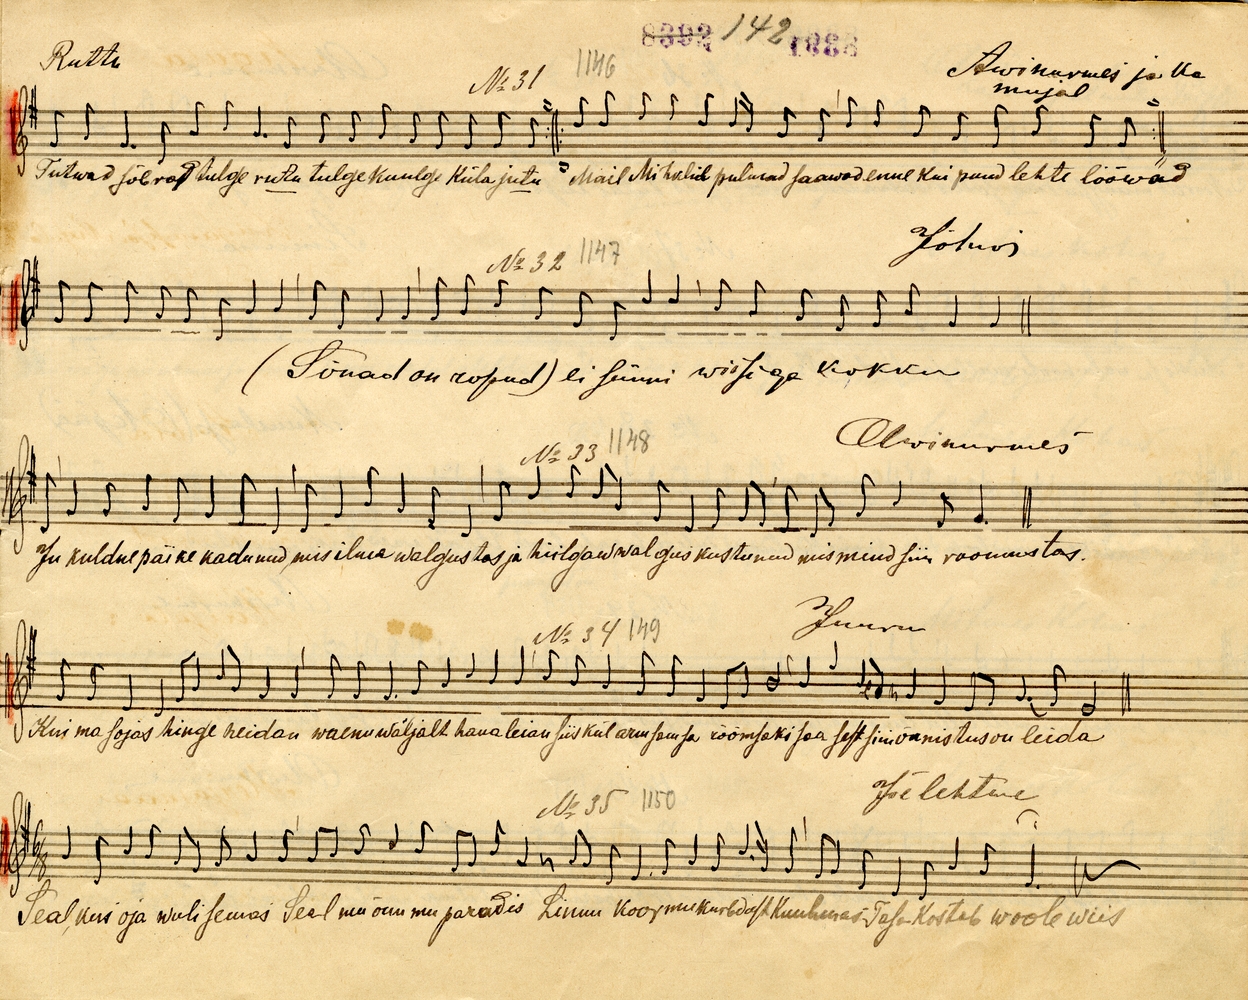 8392 142 1888
Ruttu
№ 31 1146
Awinurmes ja ka
mujal
Tutwad sõbrad tulge rutu tulge kuulge küla jutu Mail Mihklil pulmad saawad enne kui puud lehte löówad
№ 32 1147
Jõhwi
(Sõnad on ropud) ei sünni wiisiga kokku
№ 33 1148
Awinurmes
Ju kuldne päike kadunud, mis ilma walgustas ja hiilgaw walgus kustunud mis mind siin roomustas.
№ 34 1149
Juuru
Kui ma sojas hinge heidan waenuwäljalt haua leian siis kül armsam sa rõõmsaks saa sest sini on leida
№ 35 1150
Jõelehtme
Seal, kus oja wulisemas Seal mu õnn mu paradis Linnu koor Tasa kostab woole wiis